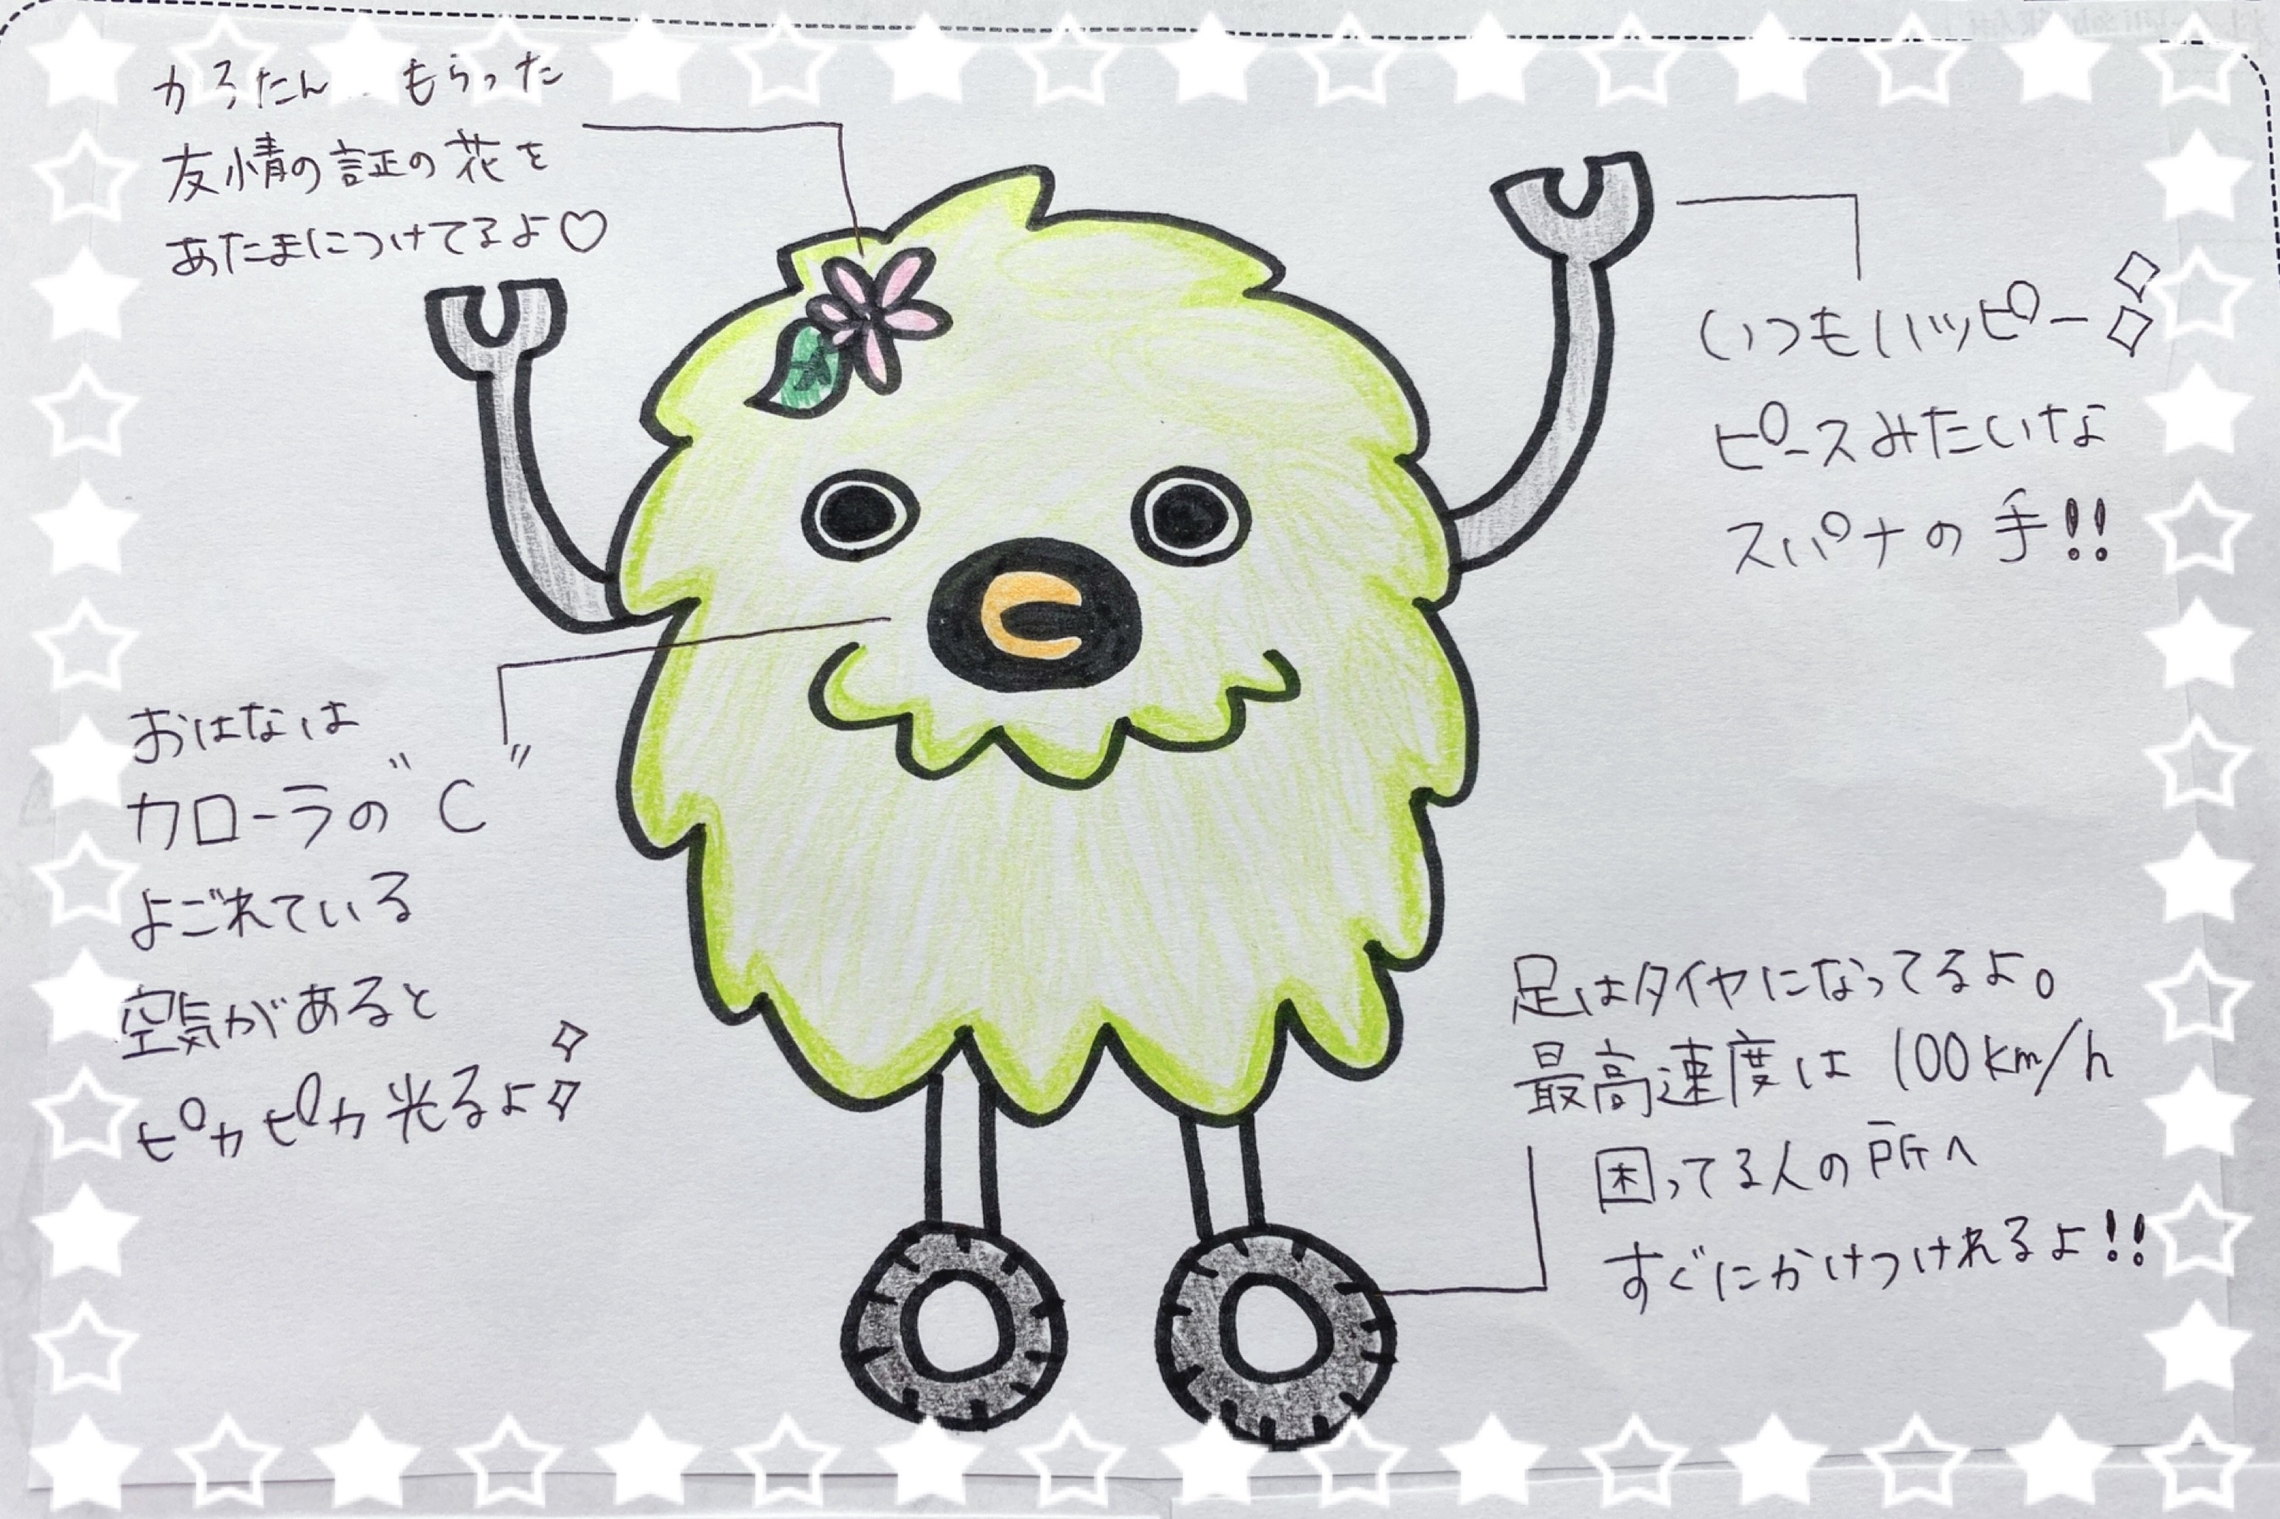 かろたん もらった
友情の証の花を
あたまにつけてるよ♡
いつもハッピー
ピースみたいな
スパナの手!!
おはなは
カローラの"C"
よごれている
空気があると
ピカピカ光るよ
足はタイヤになってるよ。
最高速度は100km/h
困ってる人の所へ
すぐにかけつけれるよ!!
C